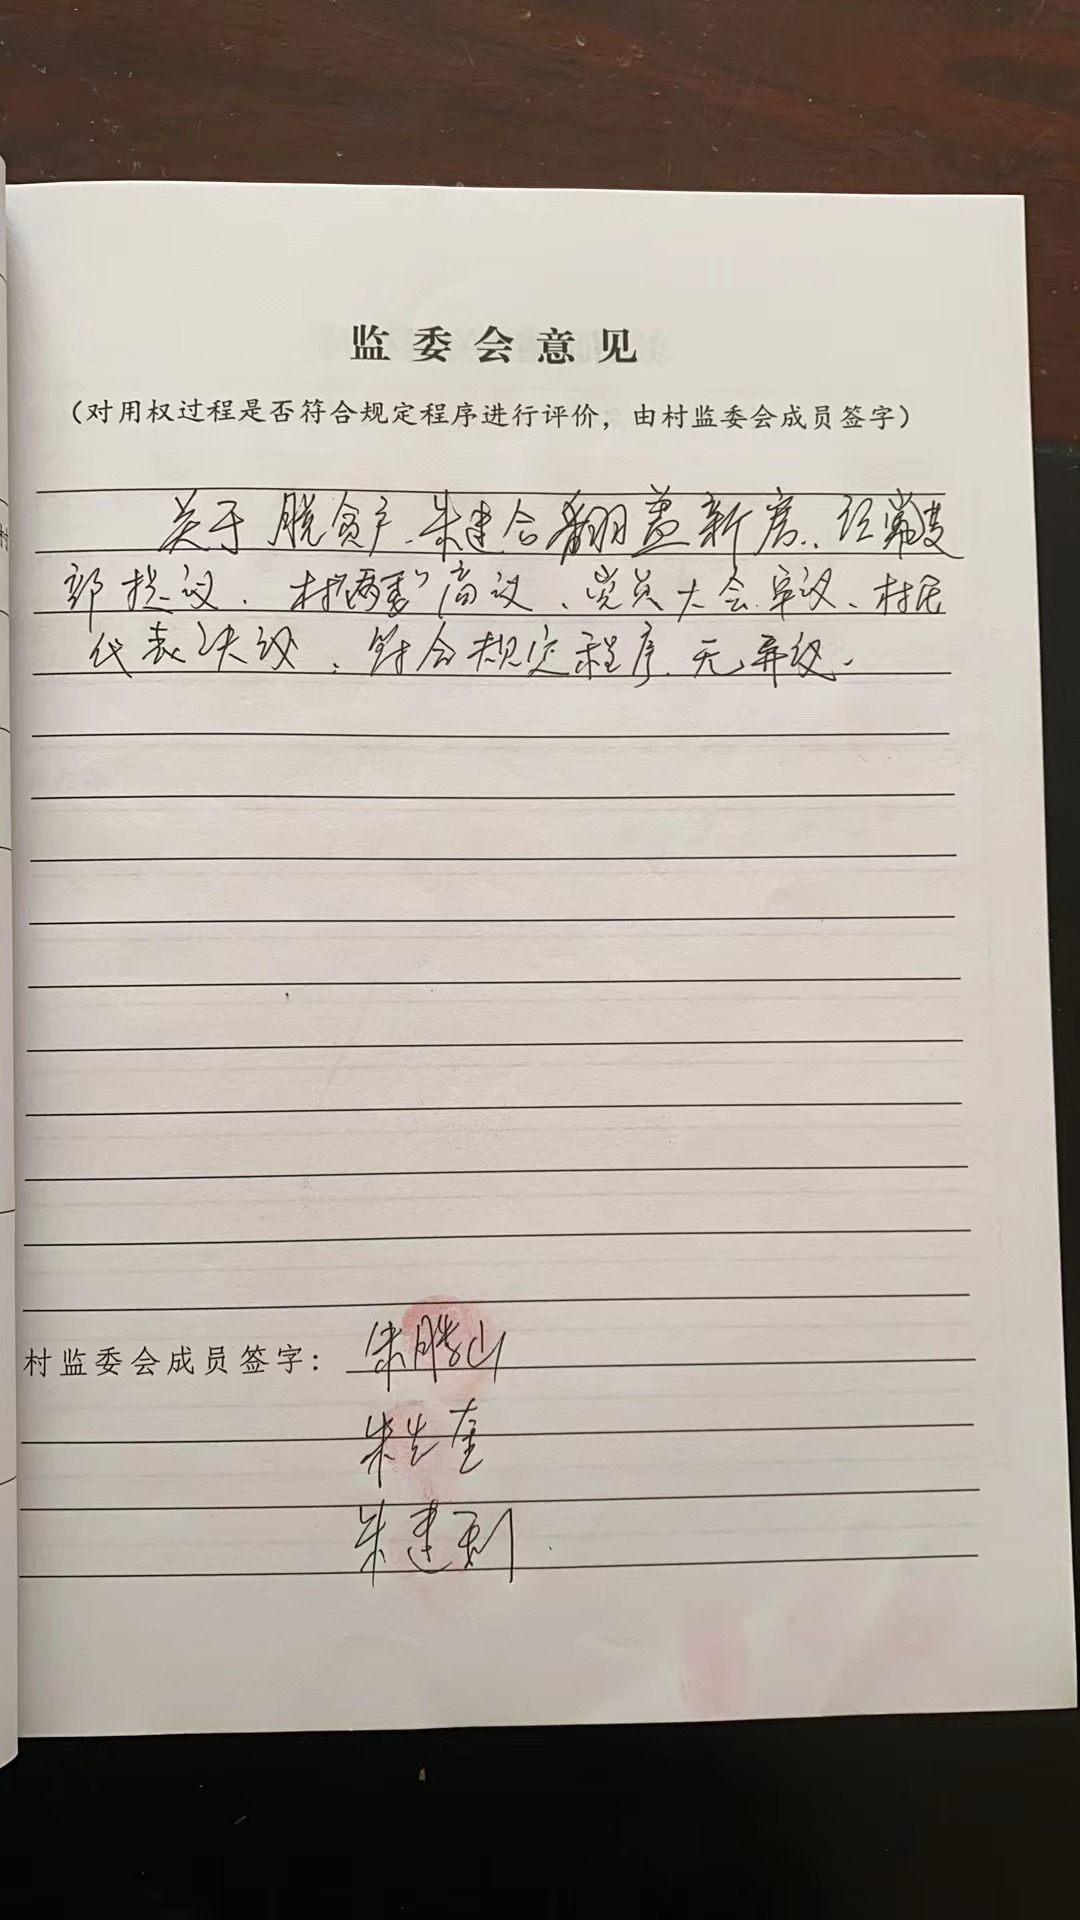 监委会意见
（对用权过程是否符合规定程序进行评价，由村监委会成员签字）
关于脱贫户朱建合翻盖新房、经党支
部提议、村“两委”商议、党员大会审议、村民
代表决议、符合规定程序、无异议.
村监委会成员签字：朱胜山
朱先奎
朱建利